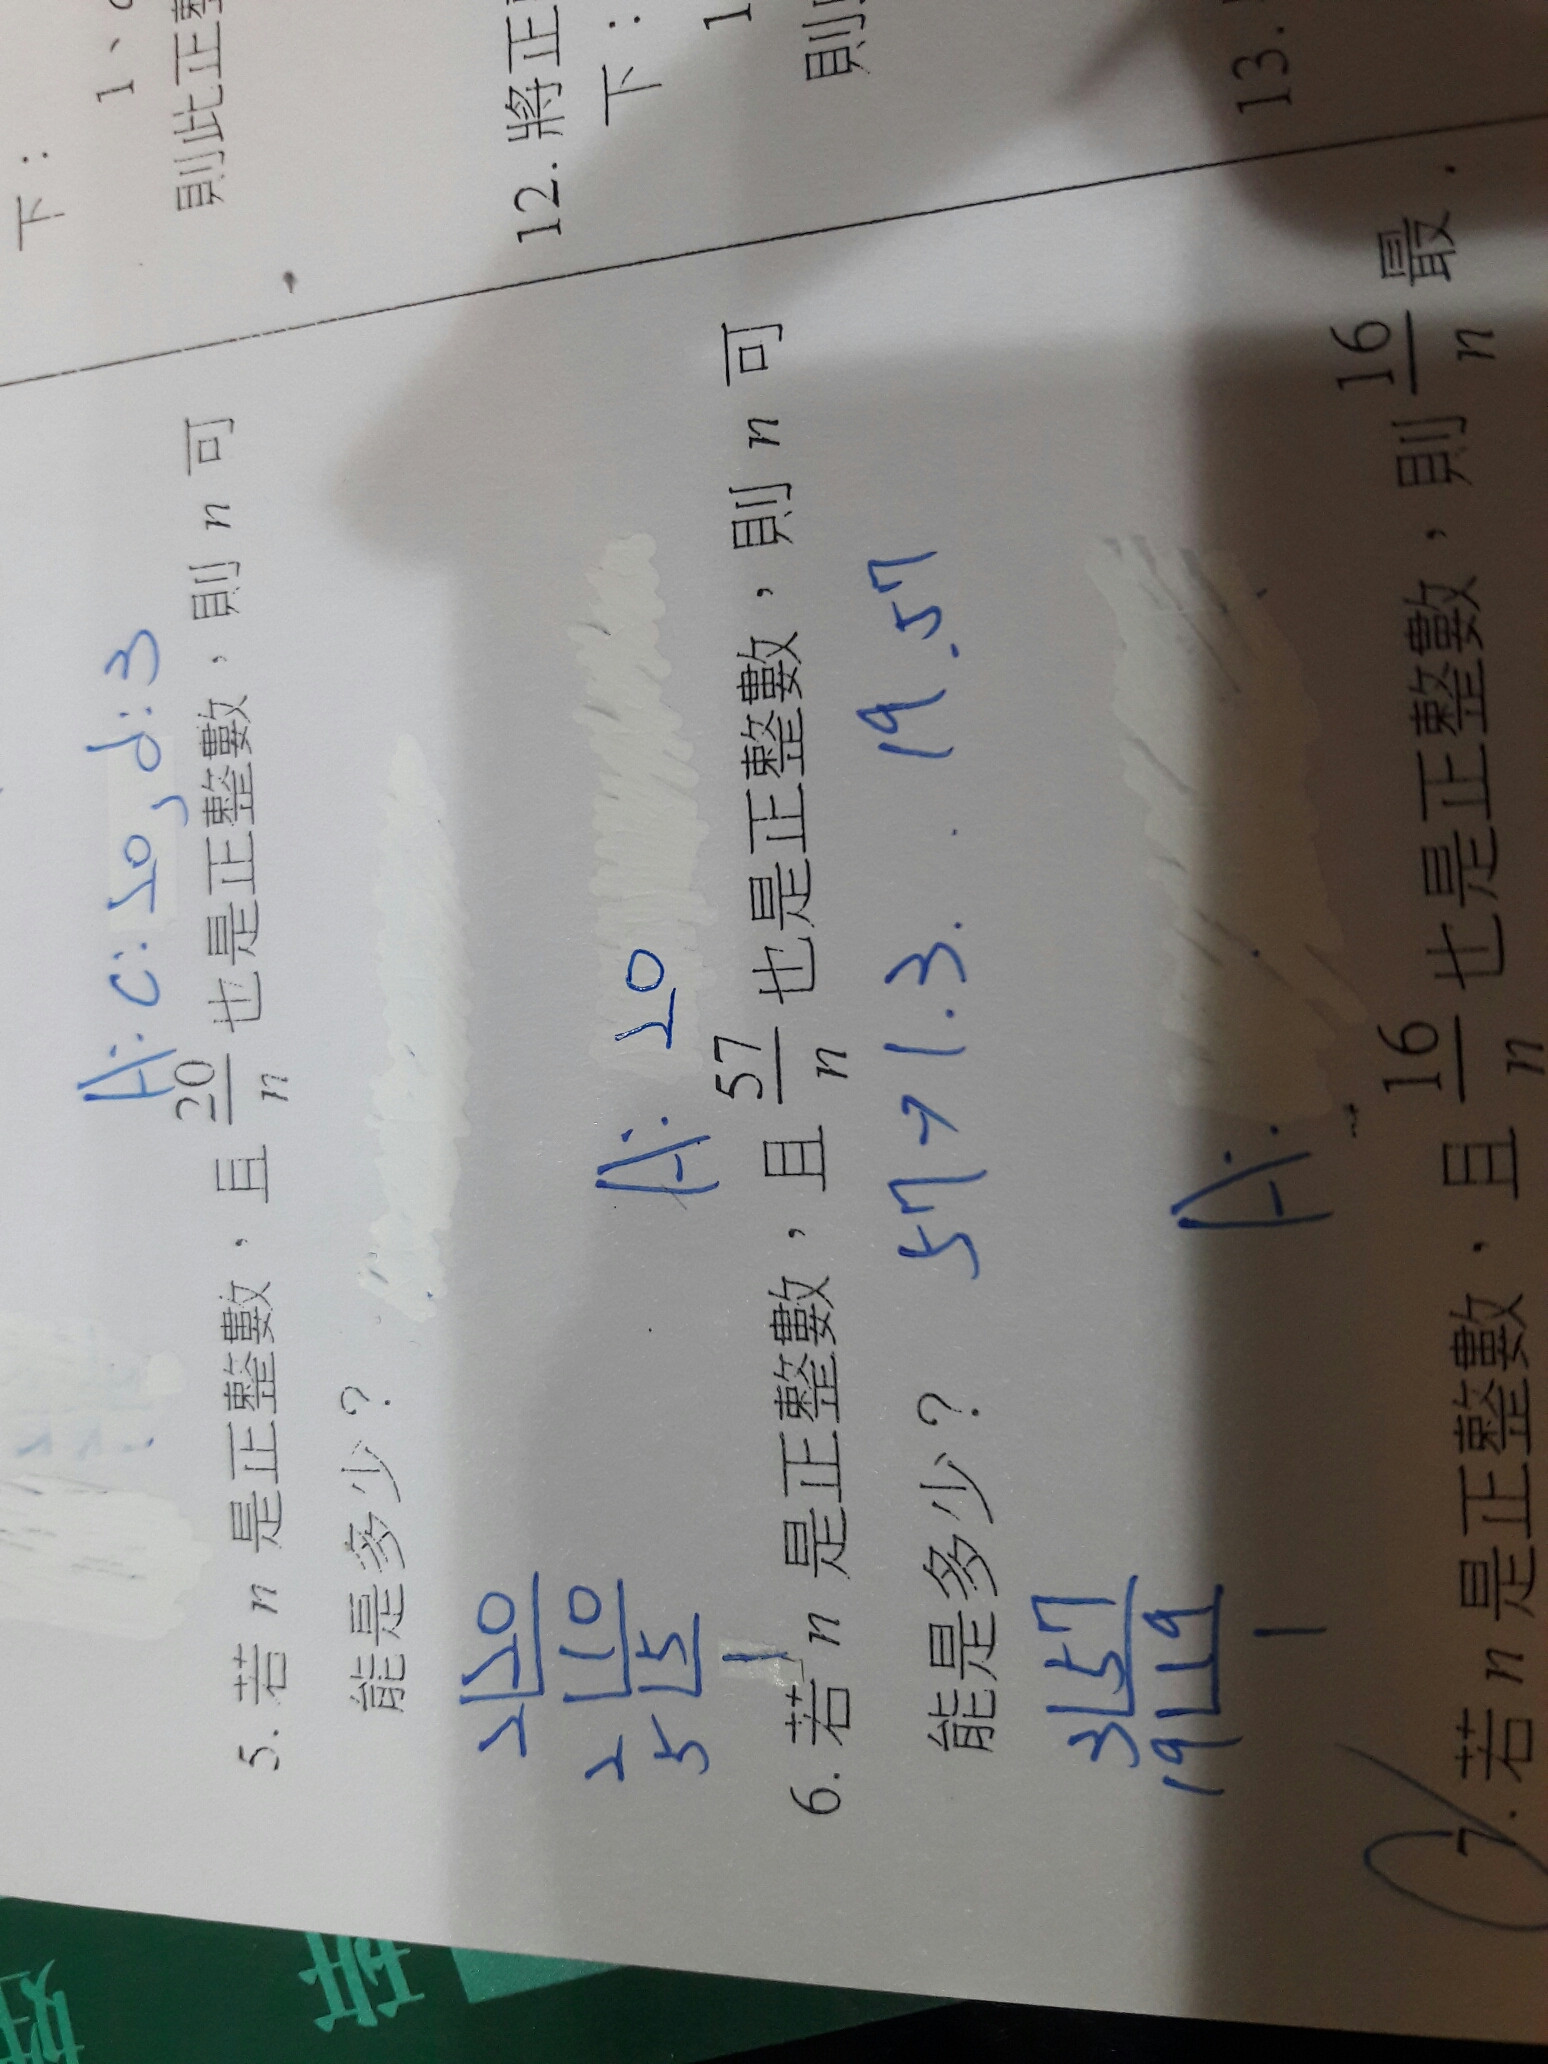 下：
1、
則此正整
12. 將正
下：
1
則
13.
A: C: 20, d: 3
5. 若 n 是正整數，且 20/n 也是正整數，則 n 可
能是多少？
2 20
2 10
5 5
1
A: 20
6. 若 n 是正整數，且 57/n 也是正整數，則 n 可
能是多少？
57 → 1. 3. 19. 57
3 57
19 19
1
A:
7. 若 n 是正整數，且 16/n 也是正整數，則 16/n 最
班